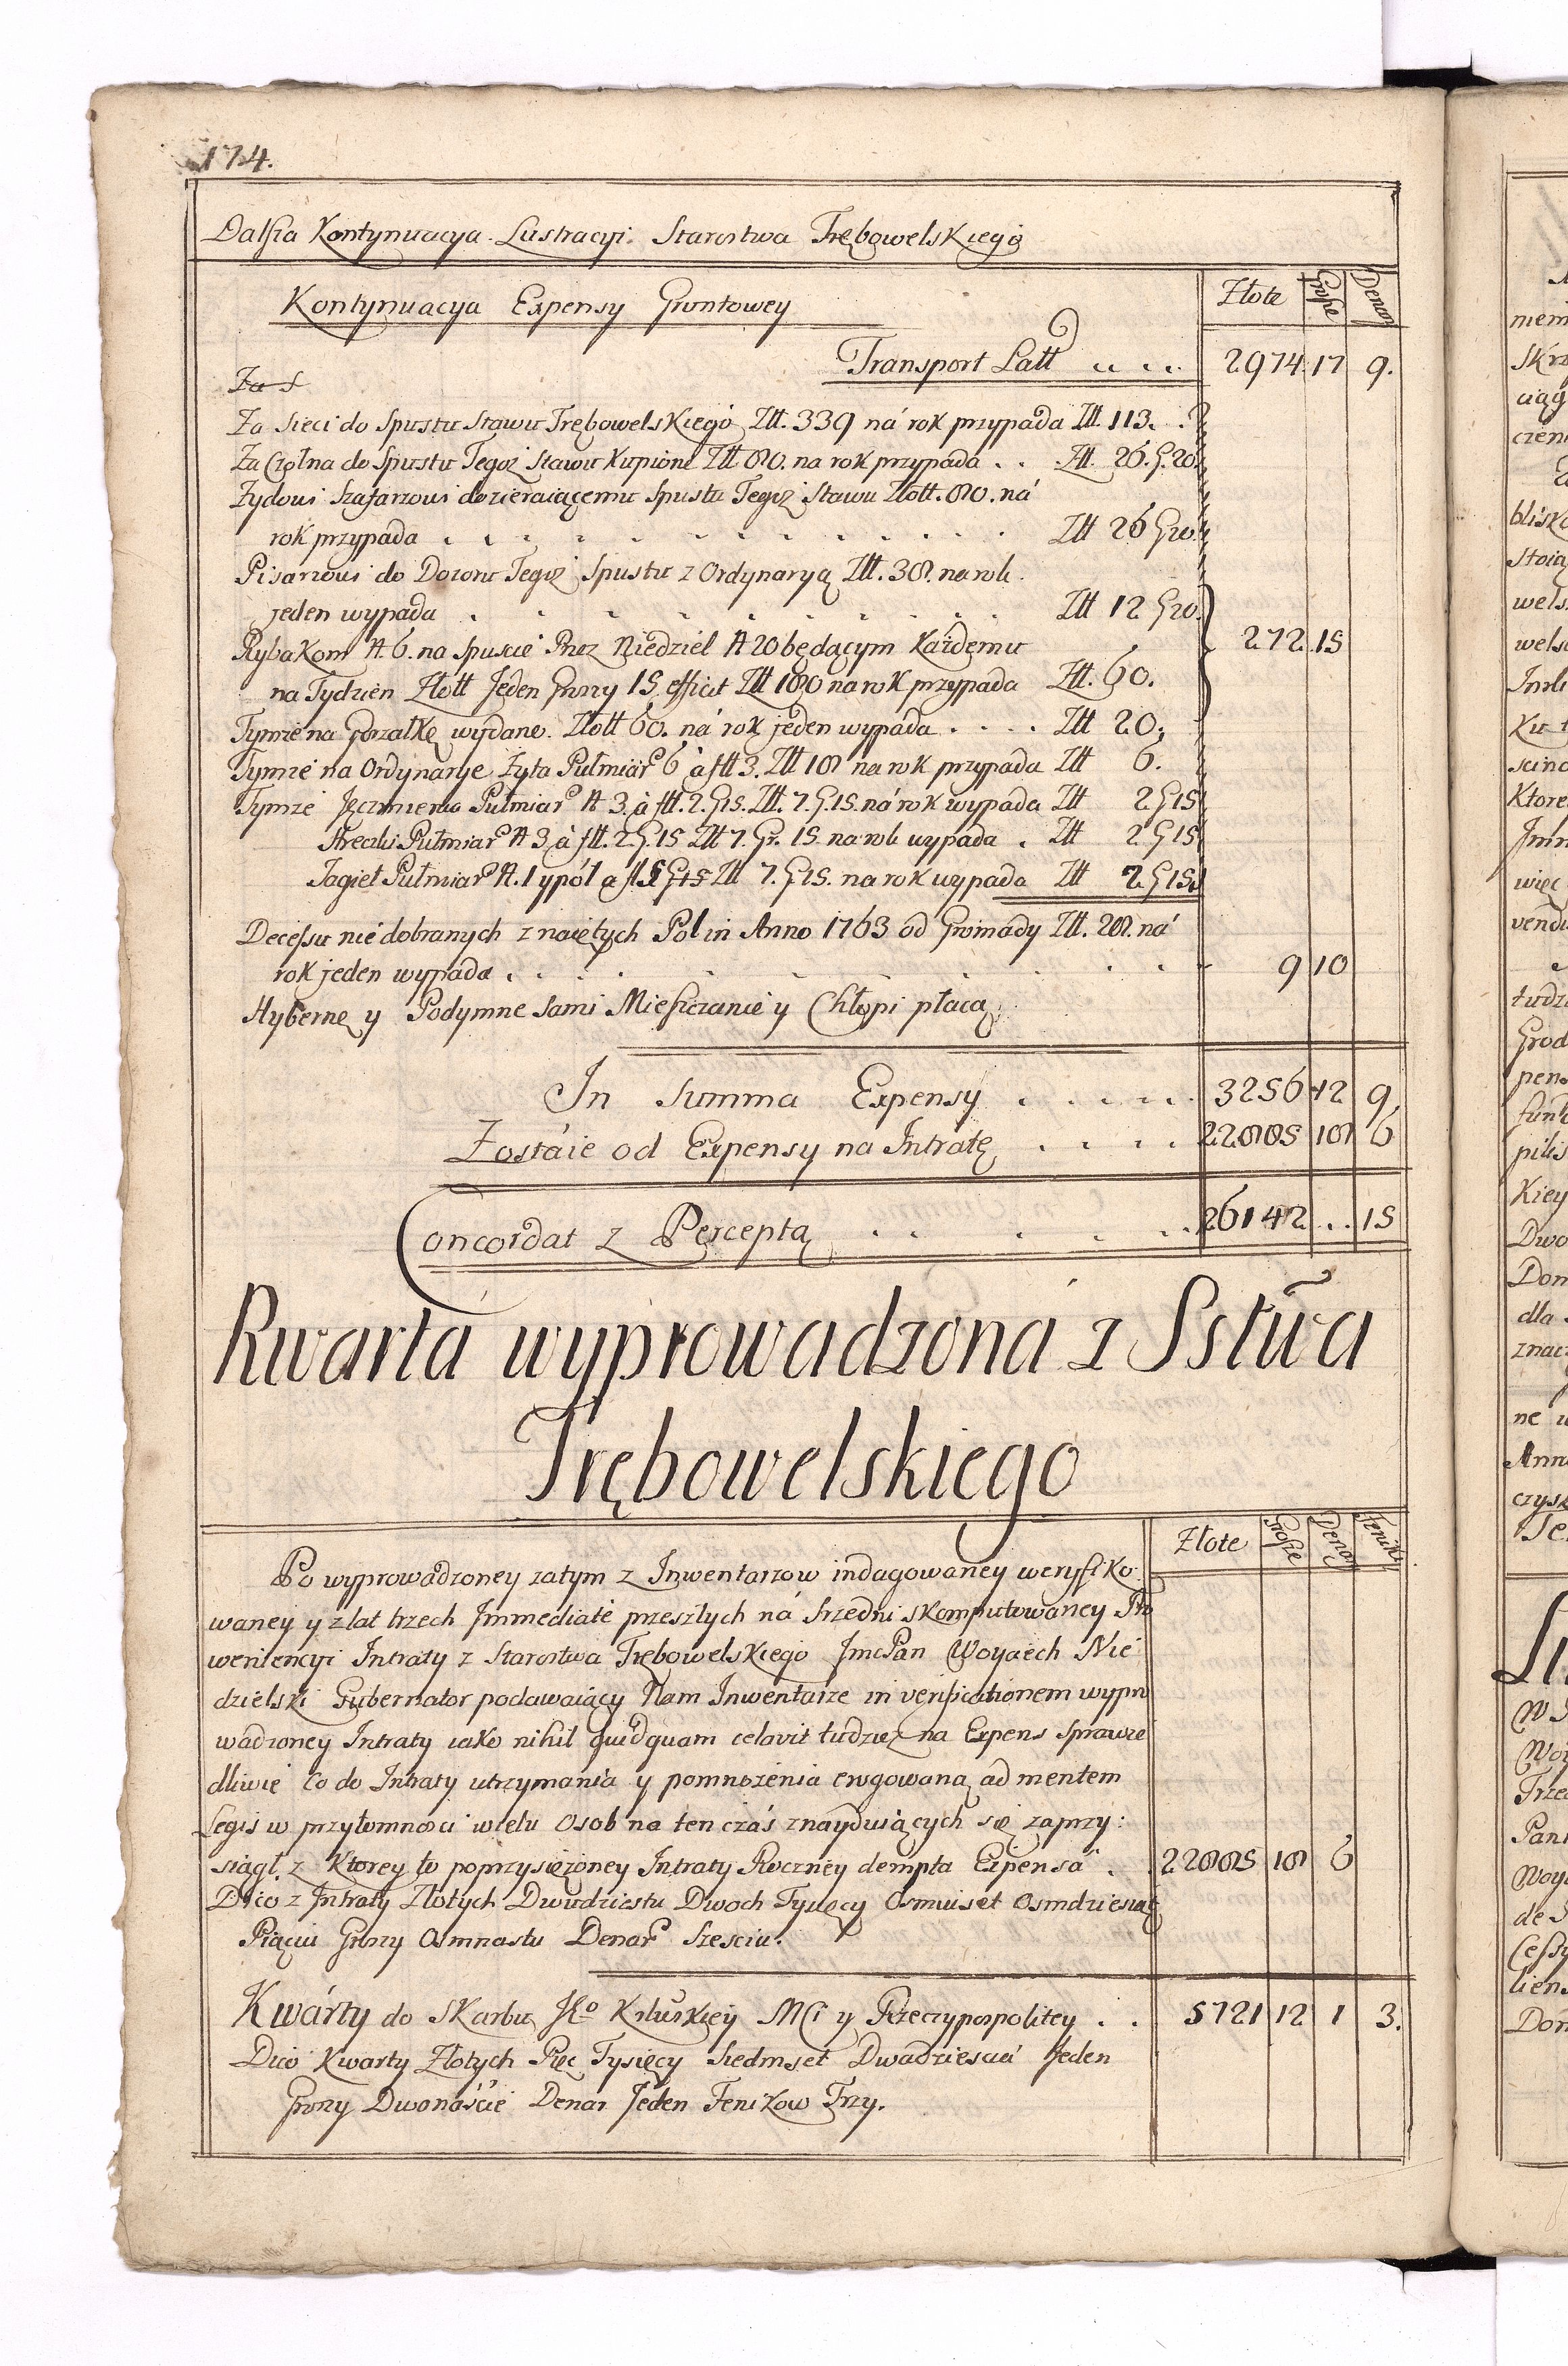 174.
Dalsza Kontynuacya Lustracyi Starostwa Trębowelskiego
Kontynuacya Expensy Gruntowey
Złote Grosze Denar
Transport Latt 2974 17 9.
Za s
Za Sieci do Spustu Stawu Trębowelskiego Złł. 339 ná rok przypada Złł. 113.
Za Czołna do Spustu Tegoż Stawu Kupione Złł 80. na rok przypada . . Złł. 26. G. 20.
Żydowi Szafarzowi dozieraiącemu Spustu Tegoż Stawu Złott. 80. ná
rok przypada Złł 26 G 20.
Pisarzowi do Dozoru Tegoż Spustu z Ordynaryą Złł. 38. na rok
jeden wypada Złł 12 G 20.
Rybakom N. 6. na Spuscie Przez Niedziel N 20 będącym Każdemu
na Tydzien Złott Jeden Groszy 15 efficit Złł 180 na rok przypada Złł. 60.
272 15
Tymże na Gorzałkę wydane. Złott 60. ná rok jeden wypada . . . . Złł 20.
Tymze na Ordynarye Żyta Pułmiar 6 à fłł 3. Złł 18 na rok przypada Złł 6.
Tymze Jęczmienia Pułmiar N 3. à fłł. 2. G 15. Złł. 7. G. 15. ná rok wypada Złł 2 G 15
Hreczki Pułmiar N 3 à fłł. 2. G. 15 Złł 7. Gr. 15 na rok wypada . Złł 2 G 15
Jagieł Pułmiar N. 1 ypół a fł 5 G 15 Złł 7. G 15. na rok wypada Złł 2. G 15.
Decessu nie dobranych z naiętych Pol in Anno 1763 od Gromady Złł. 28. ná
rok jeden wypada 9 10
Hybernę y Podymne Sami Mieszczanie y Chłopi płacą
In Summa Expensy 3256 12 9.
Zostáie od Expensy na Intratę 22885 18 6
Concordat z Perceptą 26142 . . 15
Kwarta wyprowadzona z Sstwa
Trębowelskiego
Złote Grosze Denar Feniki
Po wyprowadzoney zatym z Inwentarzow indagowaney weryfiko
waney y z lat trzech Immediate przeszłych ná Srzedni skomputowaney Pro
weniencyi Intraty z Starostwa Trębowelskiego JmcPan Woyciech Nie
dzielski Gubernator podawaiący Nam Inwentarze in verificationem wypro
wadzoney Intraty iako nihil quidquam celavit tudziez na Expens Sprawie
dliwie co do Intraty utrzymania y pomnożenia erogowaną ad mentem
Legis w przytomnosci wielu Osob na ten czas znayduiących się zaprzy:
siągł, z Ktorey to poprzysiężoney Intraty Roczney dempta Expensa . 22885 18 6
Dico z Intraty Złotych Dwudziestu Dwoch Tysięcy Osmiuset Osmdziesiąt
Piąciu Groszy Osmnastu Denar Szesciu.
Kwárty do Skarbu JKo Krluskiey Mci y Rzeczypospolitey . . 5721 12 1 3.
Dico Kwarty Złotych Pięc Tysięcy Siedmset Dwadziescia Jeden
Groszy Dwonaście Denar Jeden Fenikow Trzy.